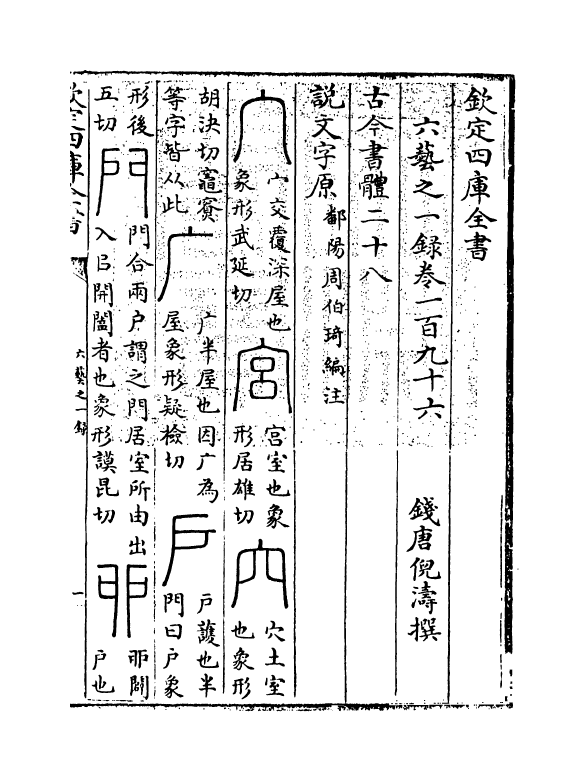 欽定四庫全書
六藝之一録卷一百九十六
錢唐倪濤撰
古今書體二十八
説文字原鄱陽周伯琦編注
宀宀交覆深屋也象形武延切宮宮室也象形居雄切穴穴土室也象形
胡決切竈竇等字皆从此广广半屋也因厂為屋象形疑檢切戶戶護也半門曰戶象
形後五切門門合兩戶謂之門居室所由出入㠯開闔者也象形謨昆切戼戼闢戶也
欽定四庫全書
六藝之一録
一